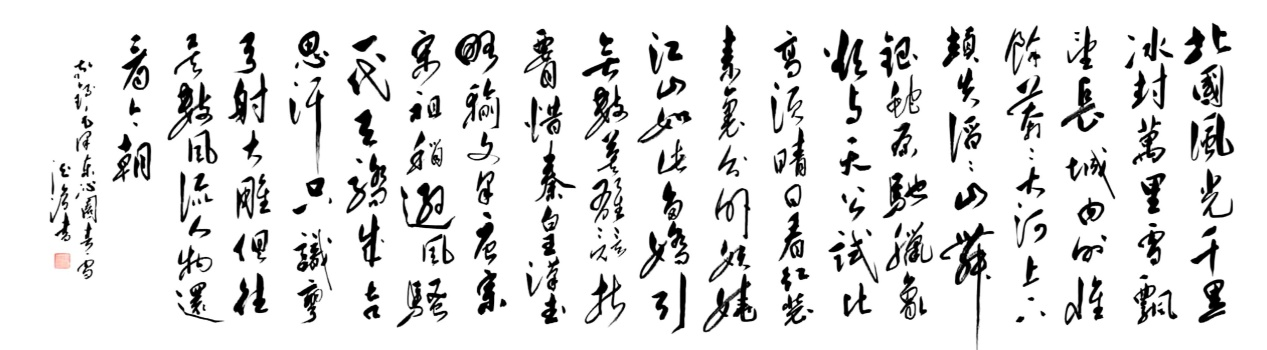 北國風光千里
冰封萬里雪飄
望長城内外惟
餘莽〻大河上下
頓失滔〻山舞
銀蛇原馳臘象
欲与天公試比
高須晴日看紅裝
素裹分外妖嬈
江山如此多嬌引
無數英雄競折
腰惜秦皇漢武
略輸文采唐宗
宋祖稍遜風騷
一代天驕成吉
思汗只識彎
弓射大雕俱往
矣數風流人物還
看今朝
毛澤東沁園春雪
書